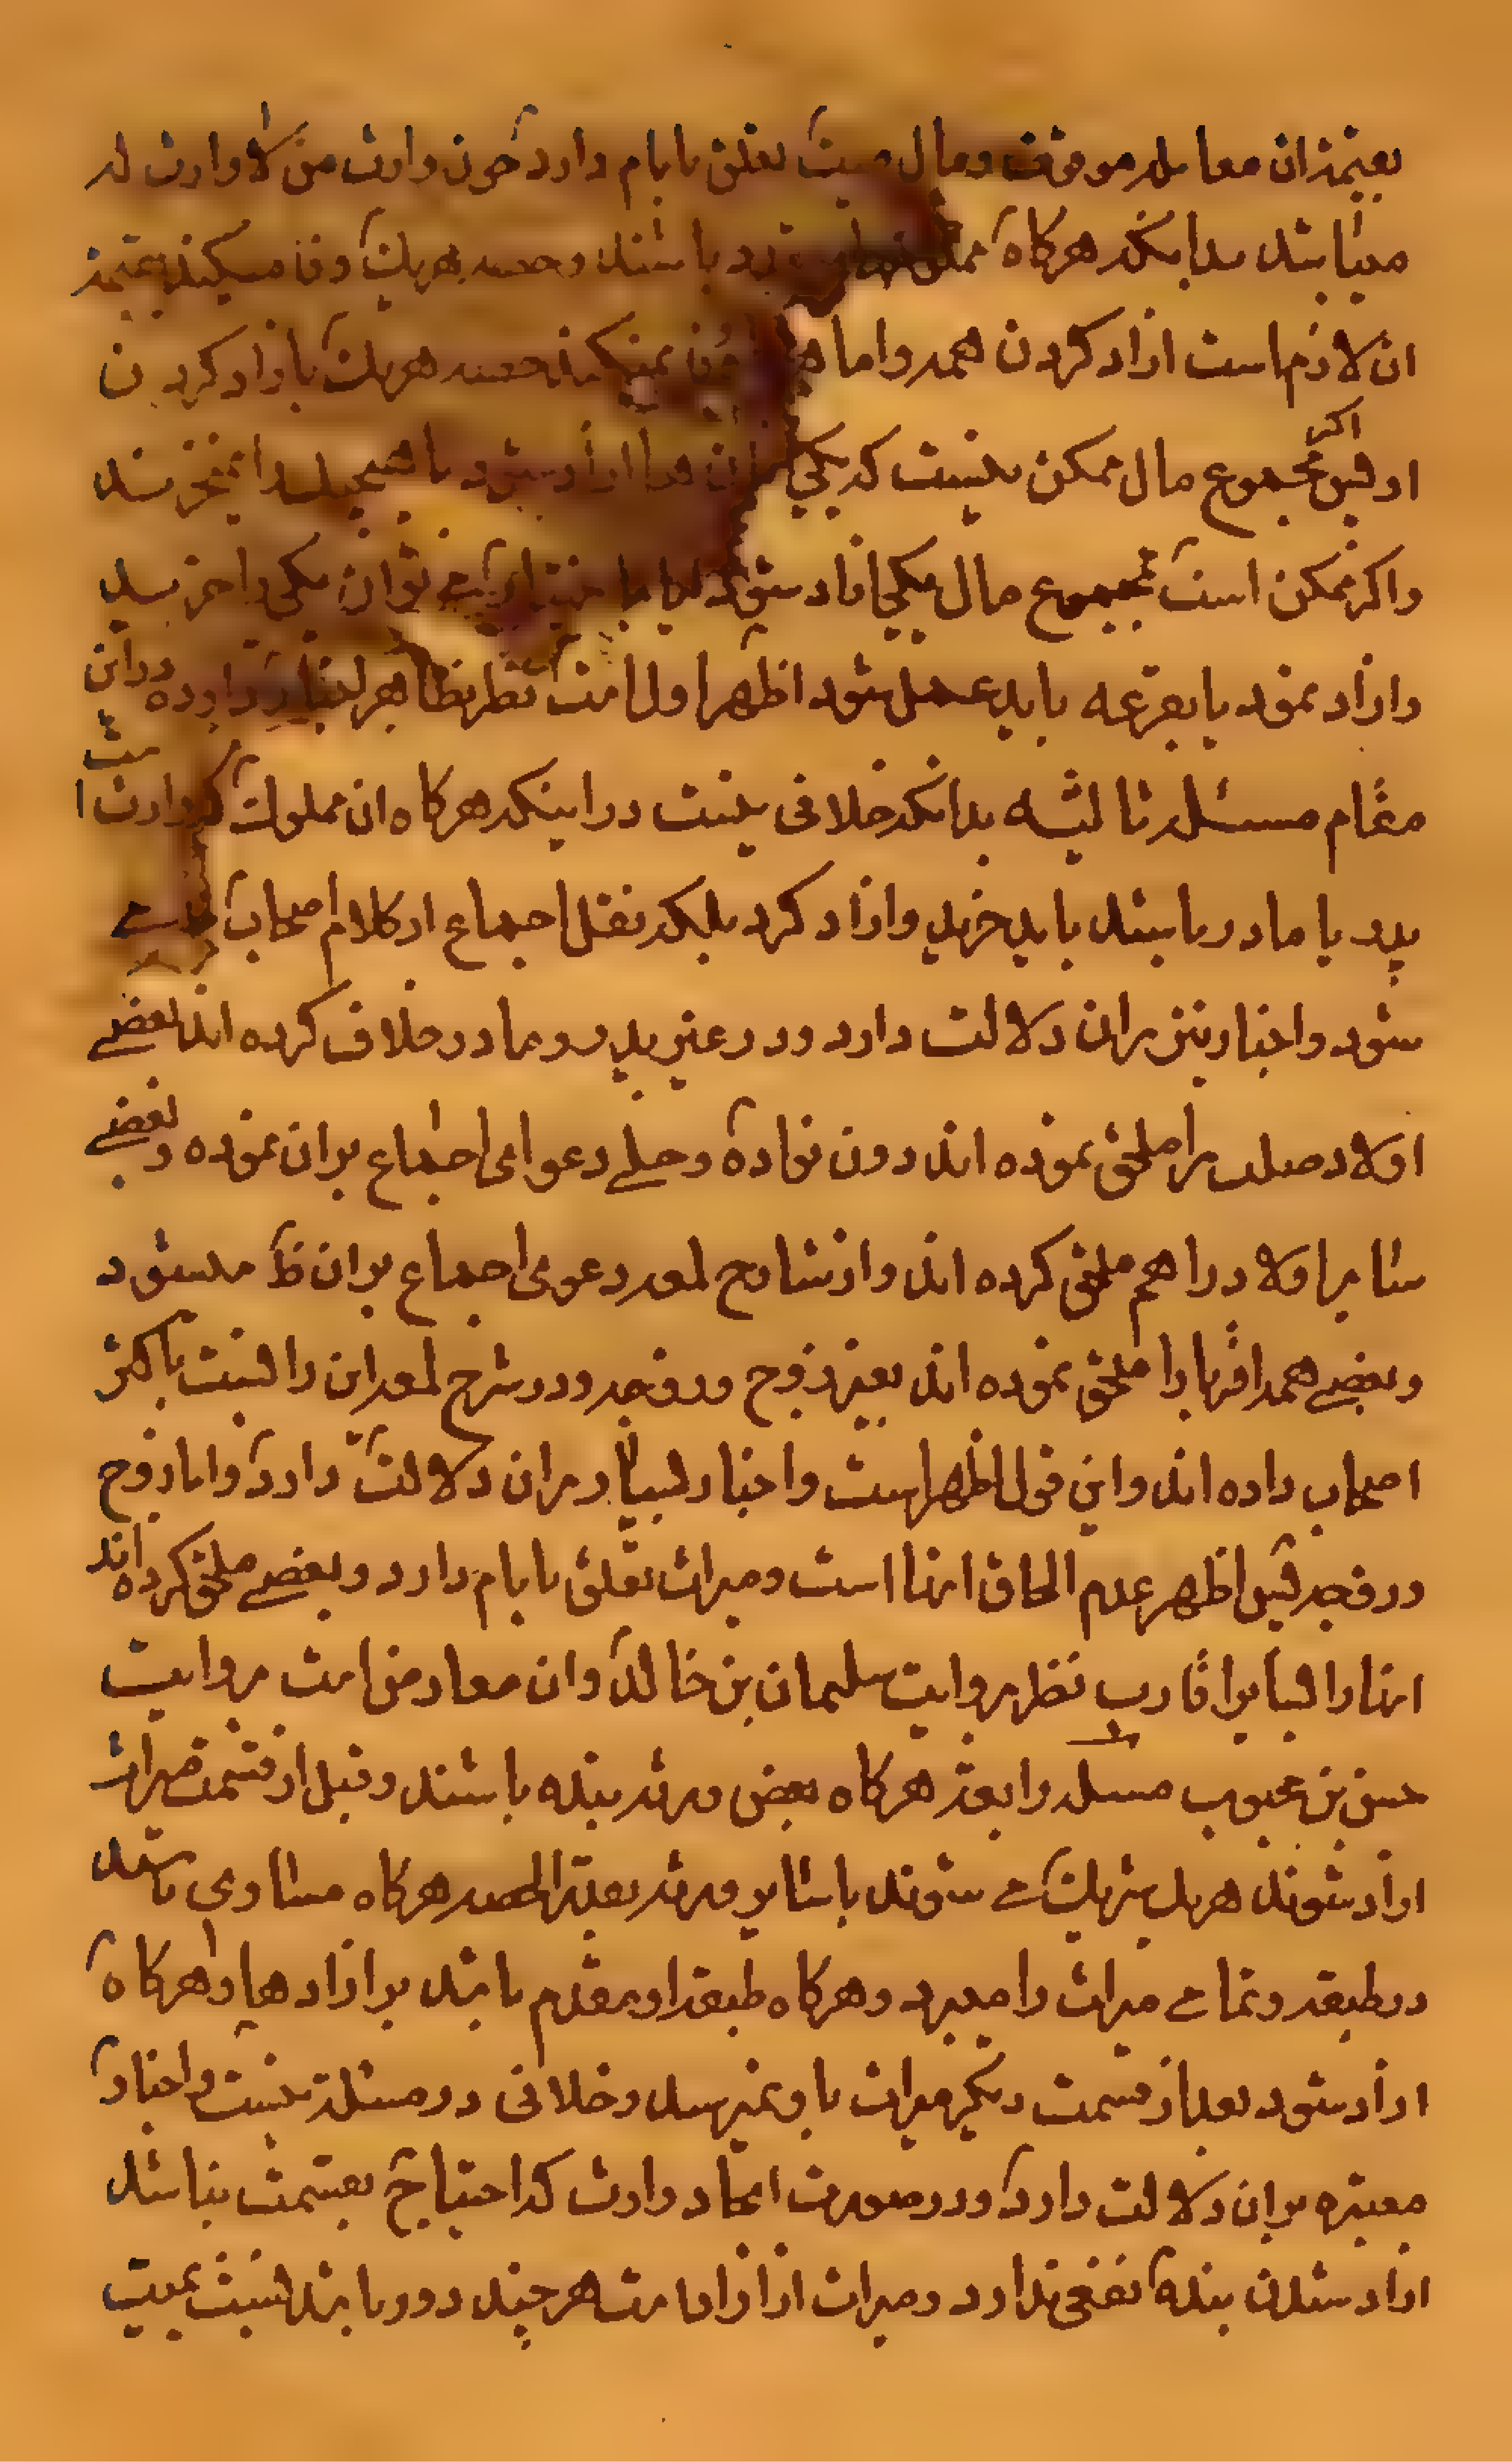 بقیمة ان معامله موقوف و مال میت تعلق بامام دارد چون وارث من لا وارث له
میباشد بدانکه هرگاه مملوک باشند و حصه هریک وفا میکند بقیمة
ان لازم است ازاد کردن همه و اما هر وفا نمیکند حصه هریک بازاد کردن
او پس اگر مجموع مال ممکن نیست که یکی ازاد شود با هیچیک را نمیخرند
و اگر ممکن است بمجموع مال یکی ازاد شود ایا باختیار می توان یکی را خرید
و ازاد نمود یا بقرعه باید عمل شود اظهر اول است نظر بظاهر اخبار وارده در این
مقام مسئله ثالثه بدانکه خلافی نیست در اینکه هرگاه ان مملوک که وارث است
پدر یا مادر باشد باید خرید و ازاد کرد بلکه نقل اجماع از کلام اصحاب می
شود و اخبار نیز بران دلالت دارد و در غیر پدر و مادر خلاف کرده اند بعضی
اولاد صلب را ملحق نموده اند دون نواده و حلی دعوای اجماع بران نموده و بعضی
سایر اولاد را هم ملحق کرده اند و از شارح لمعه دعوی اجماع بران ظ میشود
و بعضی همه اقربا را ملحق نموده اند بغیر زوج و زوجه و در شرح لمعه این را نسبت باکثر
اصحاب داده اند و این قول اظهر است و اخبار بسیار بران دلالت دارد و اما زوج
و زوجه پس اظهر عدم الحاق اینها است و میراث تعلق بامام دارد و بعضی ملحق کرده اند
اینها را بسایر اقارب نظر بروایت سلیمان بن خالد و ان معارض است بروایت
حسن بن محبوب مسئله رابعه هرگاه بعض ورثه بنده باشند و قبل از قسمت میراث
ازاد شوند هریک شریک می شوند با سایر ورثه بقدر الحصه هرگاه مساوی باشد
در طبقه و تمامی میراث را میبرد و هرگاه طبقه او مقدم باشد بر ازادها و هرگاه
ازاد شود بعد از قسمت دیگر میراث باو نمیرسد و خلافی در مسئله نیست و اخبار
معتبره بران دلالت دارد و در صورت اتحاد وارث که احتیاج بقسمت نباشد
ازاد شدن بنده نفعی ندارد و میراث از ازاد است هرچند دور باشد نسبت بمیت